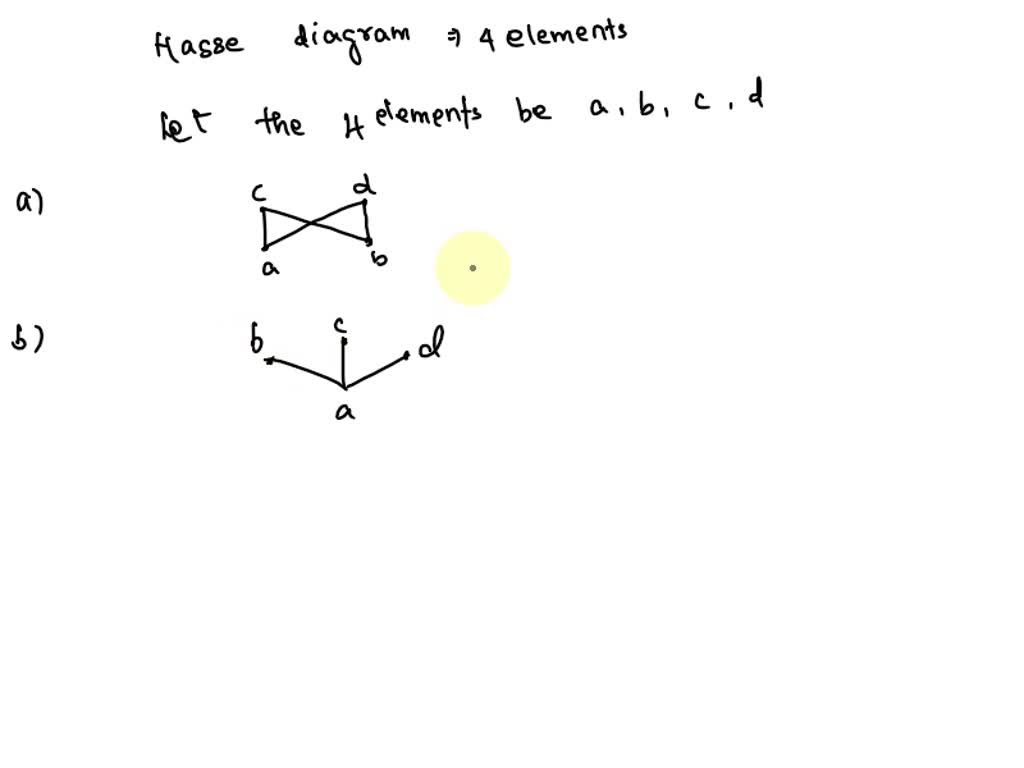 Hasse diagram ⇒ 4 elements
Let the 4 elements be a, b, c, d
a)
c d
a b
b)
b c d
a